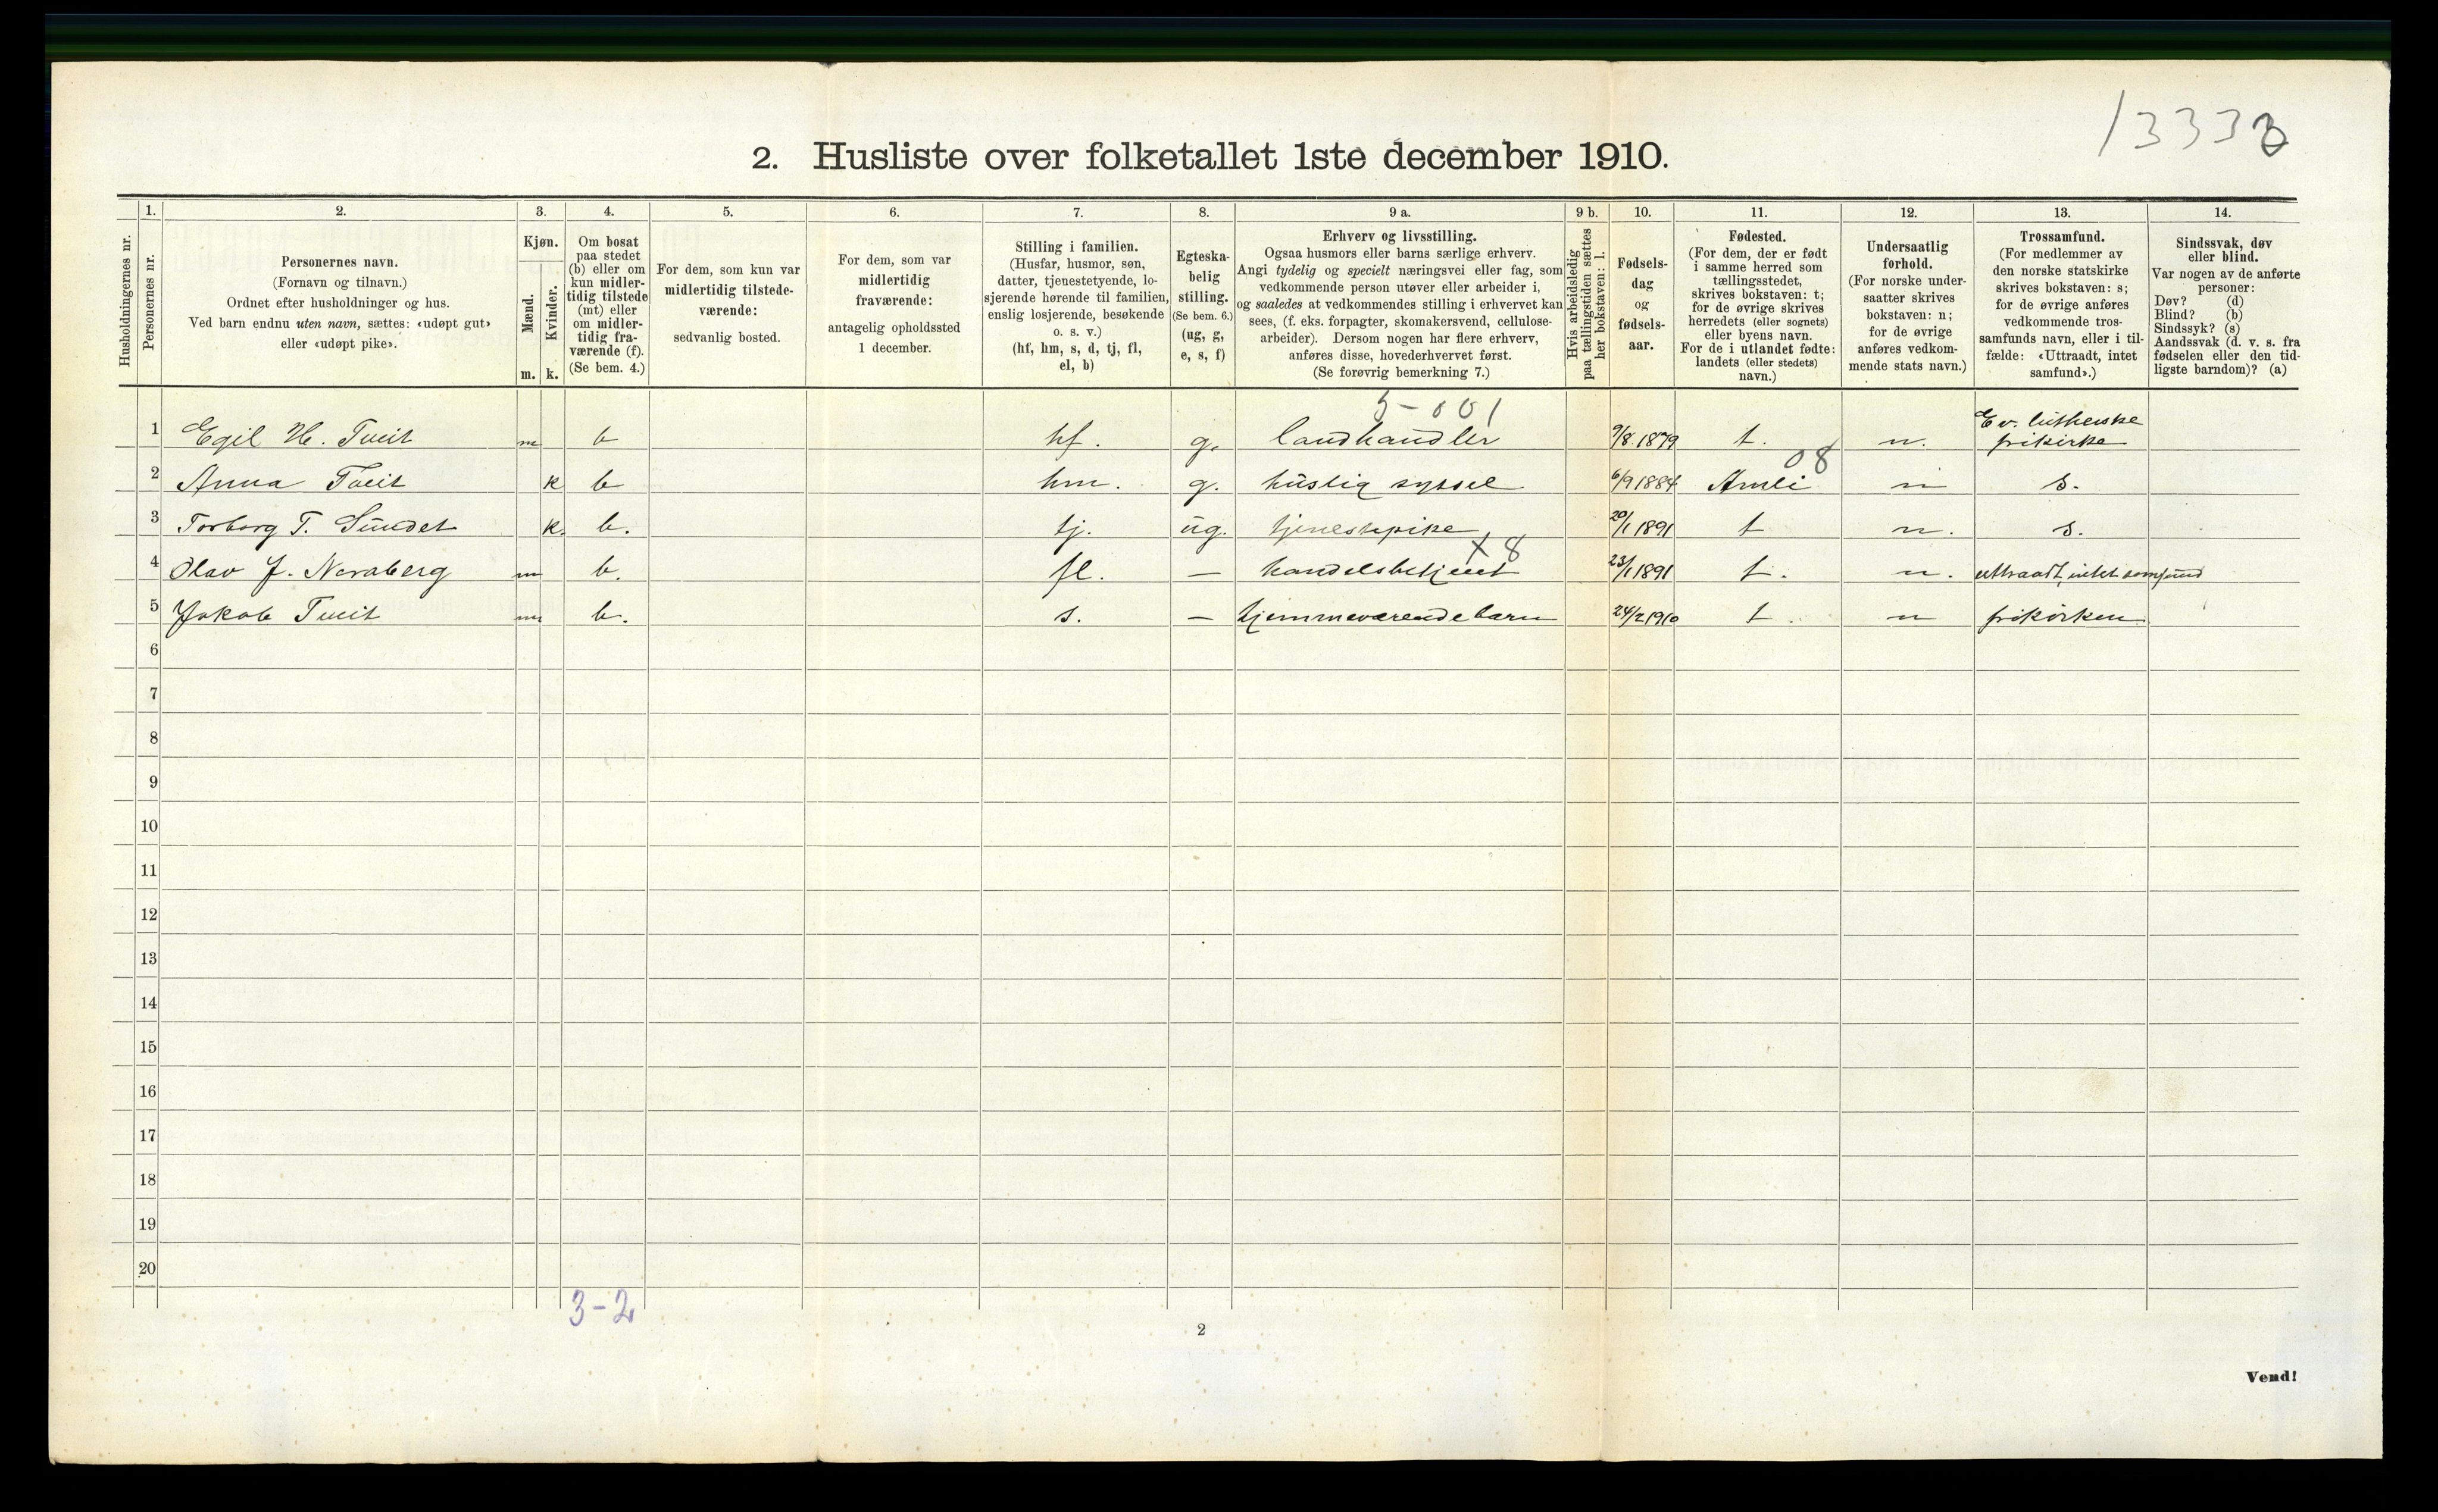 13338
2. Husliste over folketallet 1ste december 1910.
Husholdningernes nr.
1. 2. 3. 4. 5. 6. 7. 8. 9 a. 9 b. 10. 11. 12. 13. 14.
Personernes nr.
Personernes navn.
(Fornavn og tilnavn.)
Ordnet efter husholdninger og hus.
Ved barn endnu uten navn, sættes: «udøpt gut»
eller «udøpt pike».
Kjøn.
Mænd.
Kvinder.
m. k.
Om bosat
paa stedet
(b) eller om
kun midler-
tidig tilstede
(mt) eller
om midler-
tidig fra-
værende (f).
(Se bem. 4.)
For dem, som kun var
midlertidig tilstede-
værende:
sedvanlig bosted.
For dem, som var
midlertidig
fraværende:
antagelig opholdssted
1 december.
Stilling i familien.
(Husfar, husmor, søn,
datter, tjenestetyende, lo-
sjerende hørende til familien,
enslig losjerende, besøkende
o. s. v.)
(hf, hm, s, d, tj, fl,
el, b)
Egteska-
belig
stilling.
(Se bem. 6.)
(ug, g,
e, s, f)
Erhverv og livsstilling.
Ogsaa husmors eller barns særlige erhverv.
Angi tydelig og specielt næringsvei eller fag, som
vedkommende person utøver eller arbeider i,
og saaledes at vedkommendes stilling i erhvervet kan
sees, (f. eks. forpagter, skomakersvend, cellulose-
arbeider). Dersom nogen har flere erhverv,
anføres disse, hovederhvervet først.
(Se forøvrig bemerkning 7.)
Hvis arbeidsledig
paa tællingstiden sættes
her bokstaven: l.
Fødsels-
dag
og
fødsels-
aar.
Fødested.
(For dem, der er født
i samme herred som
tællingsstedet,
skrives bokstaven: t;
for de øvrige skrives
herredets (eller sognets)
eller byens navn.
For de i utlandet fødte:
landets (eller stedets)
navn.)
Undersaatlig
forhold.
(For norske under-
saatter skrives
bokstaven: n;
for de øvrige
anføres vedkom-
mende stats navn.)
Trossamfund.
(For medlemmer av
den norske statskirke
skrives bokstaven: s;
for de øvrige anføres
vedkommende tros-
samfunds navn, eller i til-
fælde: «Uttraadt, intet
samfund».)
Sindssvak, døv
eller blind.
Var nogen av de anførte
personer:
Døv? (d)
Blind? (b)
Sindssyk? (s)
Aandssvak (d. v. s. fra
fødselen eller den tid-
ligste barndom)? (a)
5-001
1 Egil H. Tveit m b hf. g. landhandler 9/8 1879 t. n. Ev. lutherske frikirke
08
2 Anna Tveit k b hm. g. huslig syssel 6/9 1884 Amli n s.
3 Torborg T. Sundet k. b. tj. ug. tjenestepike 20/1 1891 t n. s.
x 8
4 Olav J. Nersberg m b. fl. — handelsbetjent 23/1 1891 t. n. uttraadt, intet samfund
5 Jakob Tveit m b. s. — hjemmeværende barn 24/2 1910 t. n frikirken
6
7
8
9
10
11
12
13
14
15
16
17
18
19
20
3-2
2
Vend!